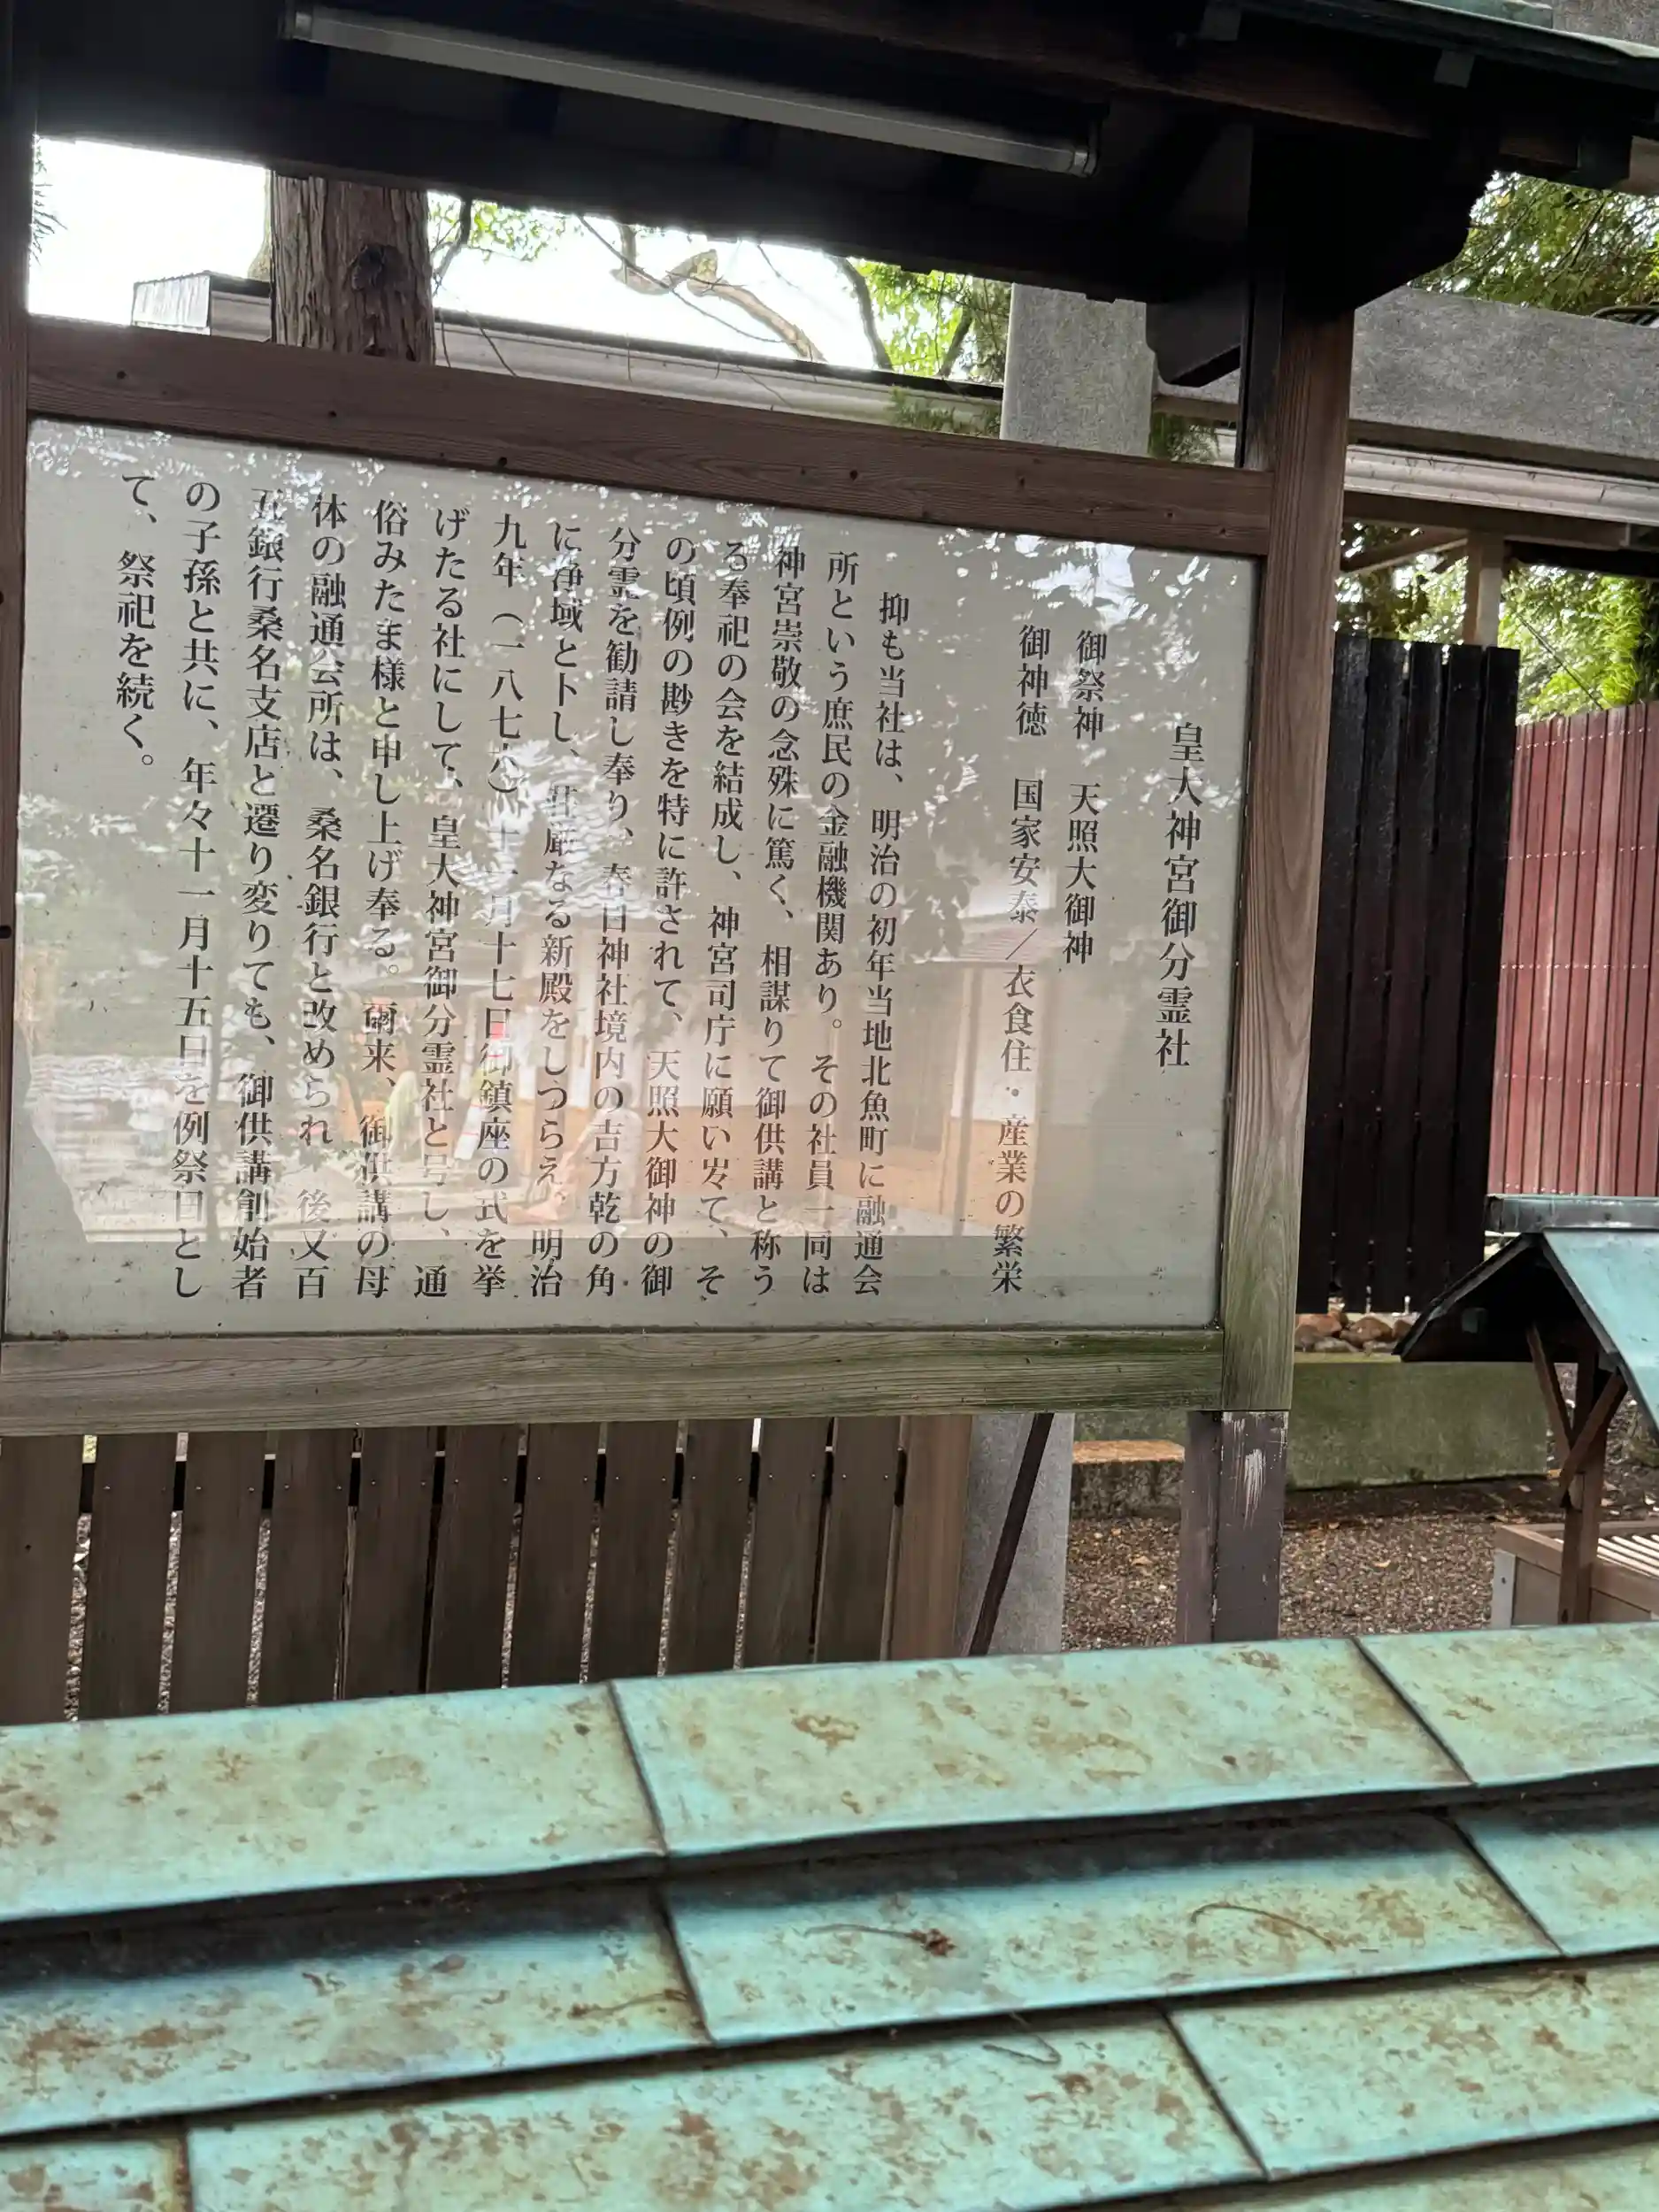 皇大神宮御分霊社
御祭神　天照大御神
御神徳　国家安泰／衣食住・産業の繁栄
抑も当社は、明治の初年当地北魚町に融通会
所という庶民の金融機関あり。その社員一同は
神宮崇敬の念殊に篤く、相謀りて御供講と称う
る奉祀の会を結成し、神宮司庁に願い岁て、そ
の頃例の尠きを特に許されて、天照大御神の御
分霊を勧請し奉り、春日神社境内の吉方乾の角
に浄域と卜し、荘厳なる新殿をしつらえ、明治
九年（一八七六）十一月十七日御鎮座の式を挙
げたる社にして、皇大神宮御分霊社と号し、通
俗みたま様と申し上げ奉る。爾来、御供講の母
体の融通会所は、桑名銀行と改められ、後又百
五銀行桑名支店と遷り変りても、御供講創始者
の子孫と共に、年々十一月十五日を例祭日とし
て、祭祀を続く。